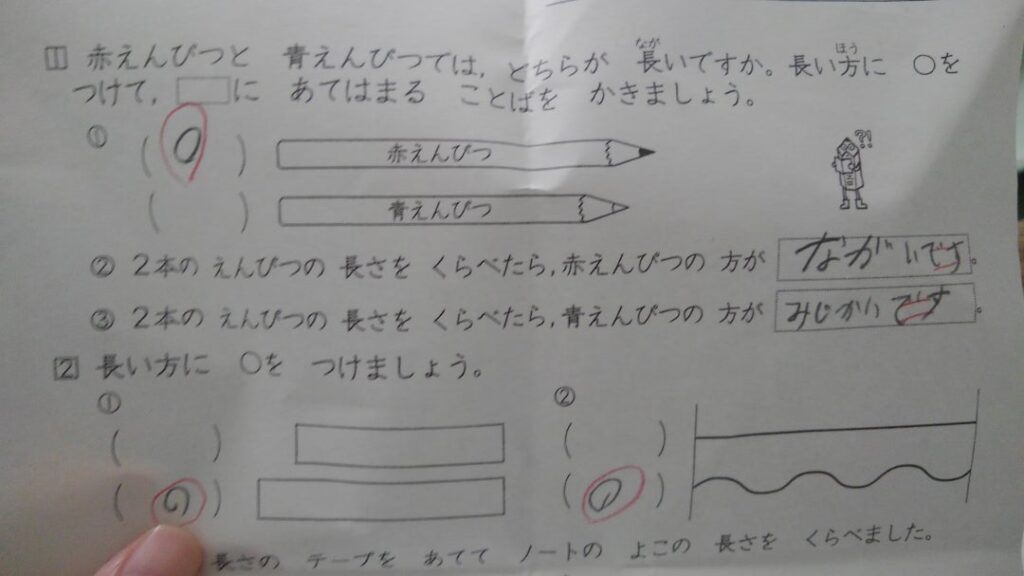 1 赤えんぴつと 青えんぴつでは, どちらが 長いですか。長い方に ○を
なが
ほう
つけて, □に あてはまる ことばを かきましょう。
① (○) 赤えんぴつ
?!
( ) 青えんぴつ
② 2本の えんぴつの 長さを くらべたら, 赤えんぴつの 方が ながいです。
③ 2本の えんぴつの 長さを くらべたら, 青えんぴつの 方が みじかいです。
2 長い方に ○を つけましょう。
① ②
( ) ( )
(○) (○)
長さの テープを あてて ノートの よこの 長さを くらべました。